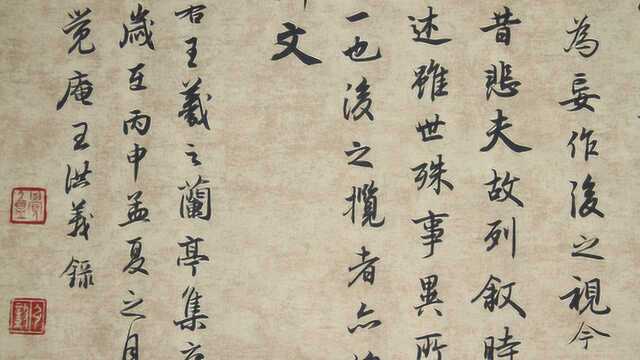 為妄作後之視今
昔悲夫故列敘時
述雖世殊事異所
一也後之攬者亦
文
右王羲之蘭亭集序
歲在丙申孟夏之月
覺庵王洪義錄